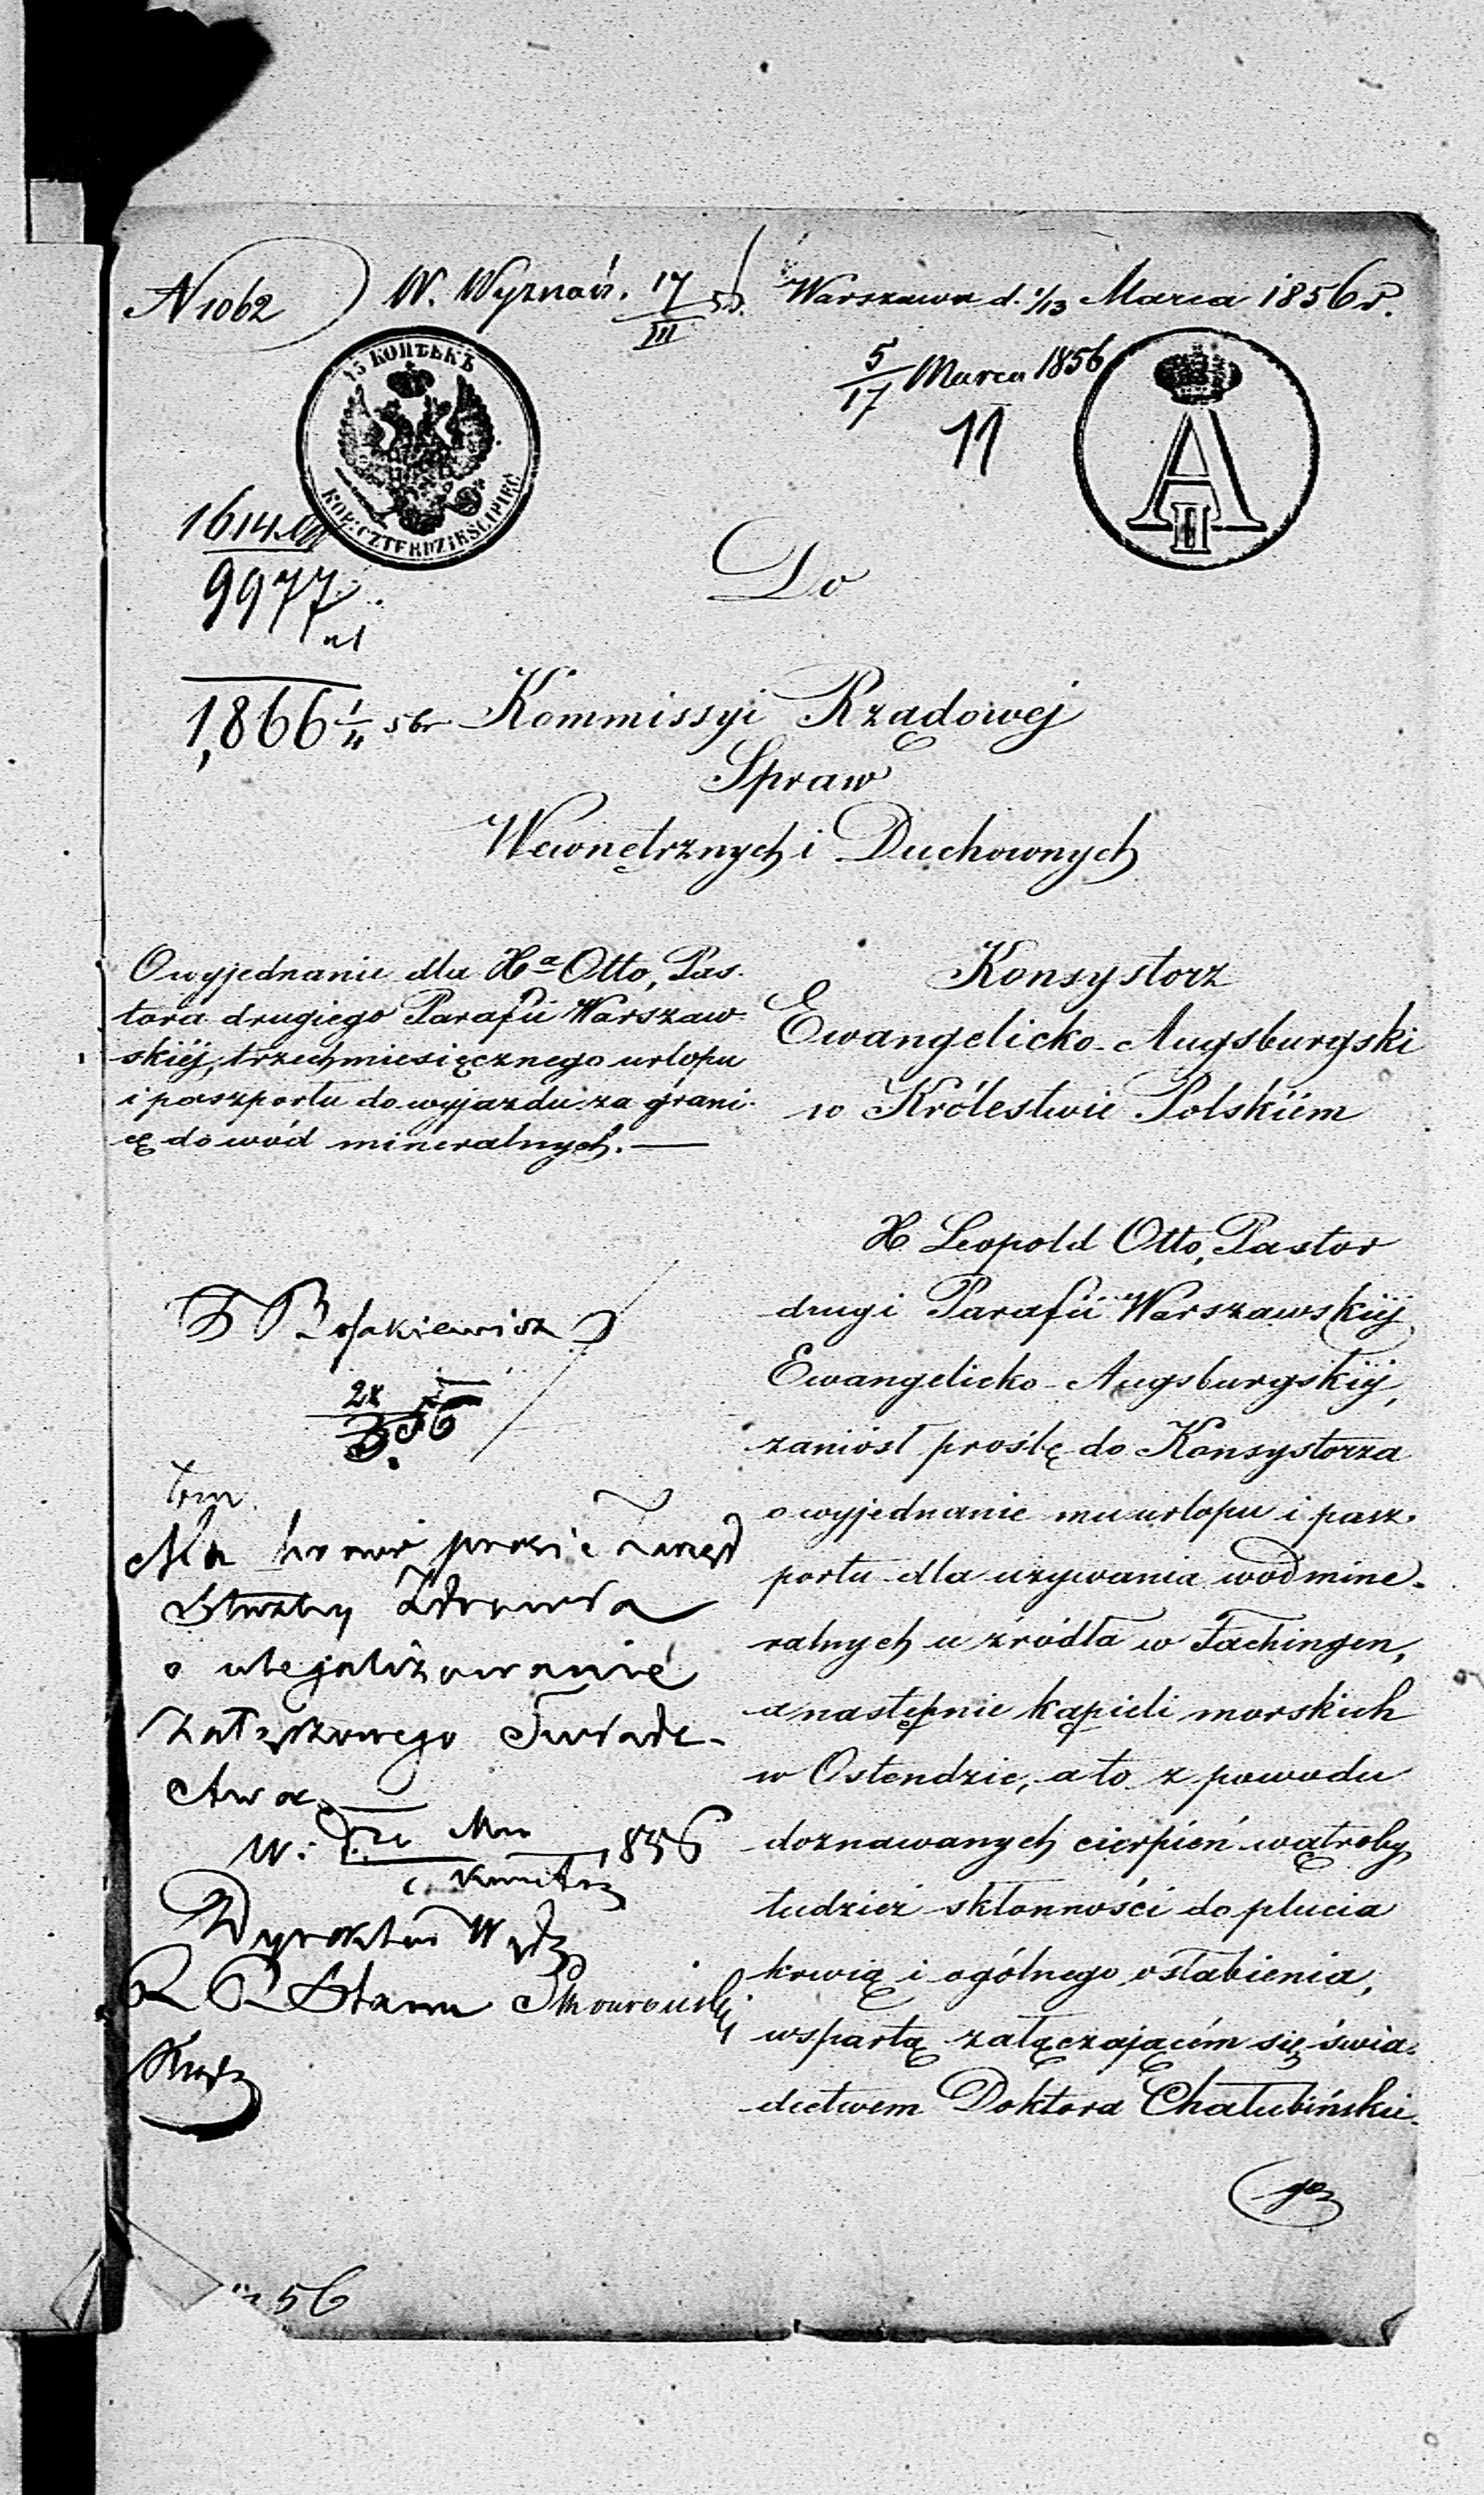 N 1062 W. Wyznań. 17/III 56. Warszawa d. 1/13 Marca 1856 r.
5/17 Marca 1856
11
45 КОПѢЕКЪ
KOP: CZTERDZIEŚCI PIĘĆ
A II
1614
9977
1,866 1/4 56r
Do
Kommissyi Rządowej
Spraw
Wewnętrznych i Duchownych
O wyjednanie dla Xa Otto, Pas-
tora drugiego Parafii Warszaw-
skiéj, trzechmiesięcznego urlopu
i paszportu do wyjazdu za grani-
cę do wód mineralnych. —
Konsystorz
Ewangelicko-Augsburgski
w Królestwie Polskiem
X Leopold Otto, Pastor
drugi Parafii Warszawskiéj
Ewangelicko-Augsburgskiéj,
zaniósł prośbę do Konsystorza
o wyjednanie mu urlopu i pasz-
portu dla używania wód mine-
ralnych u źródła w Fachingen,
a następnie kąpieli morskich
w Ostendzie, a to z powodu
doznawanych cierpień wątroby
tudzież skłonności do plucia
krwią i ogólnego osłabienia,
wspartą załączającém się świa-
dectwem Doktora Chałubińskie-
go
prosić Zarząd
Służby Zdrowia
o ulegalizowanie
załączonego Świade-
ctwa
W. 856
Dyrektor Wydz
R R Stanu
56